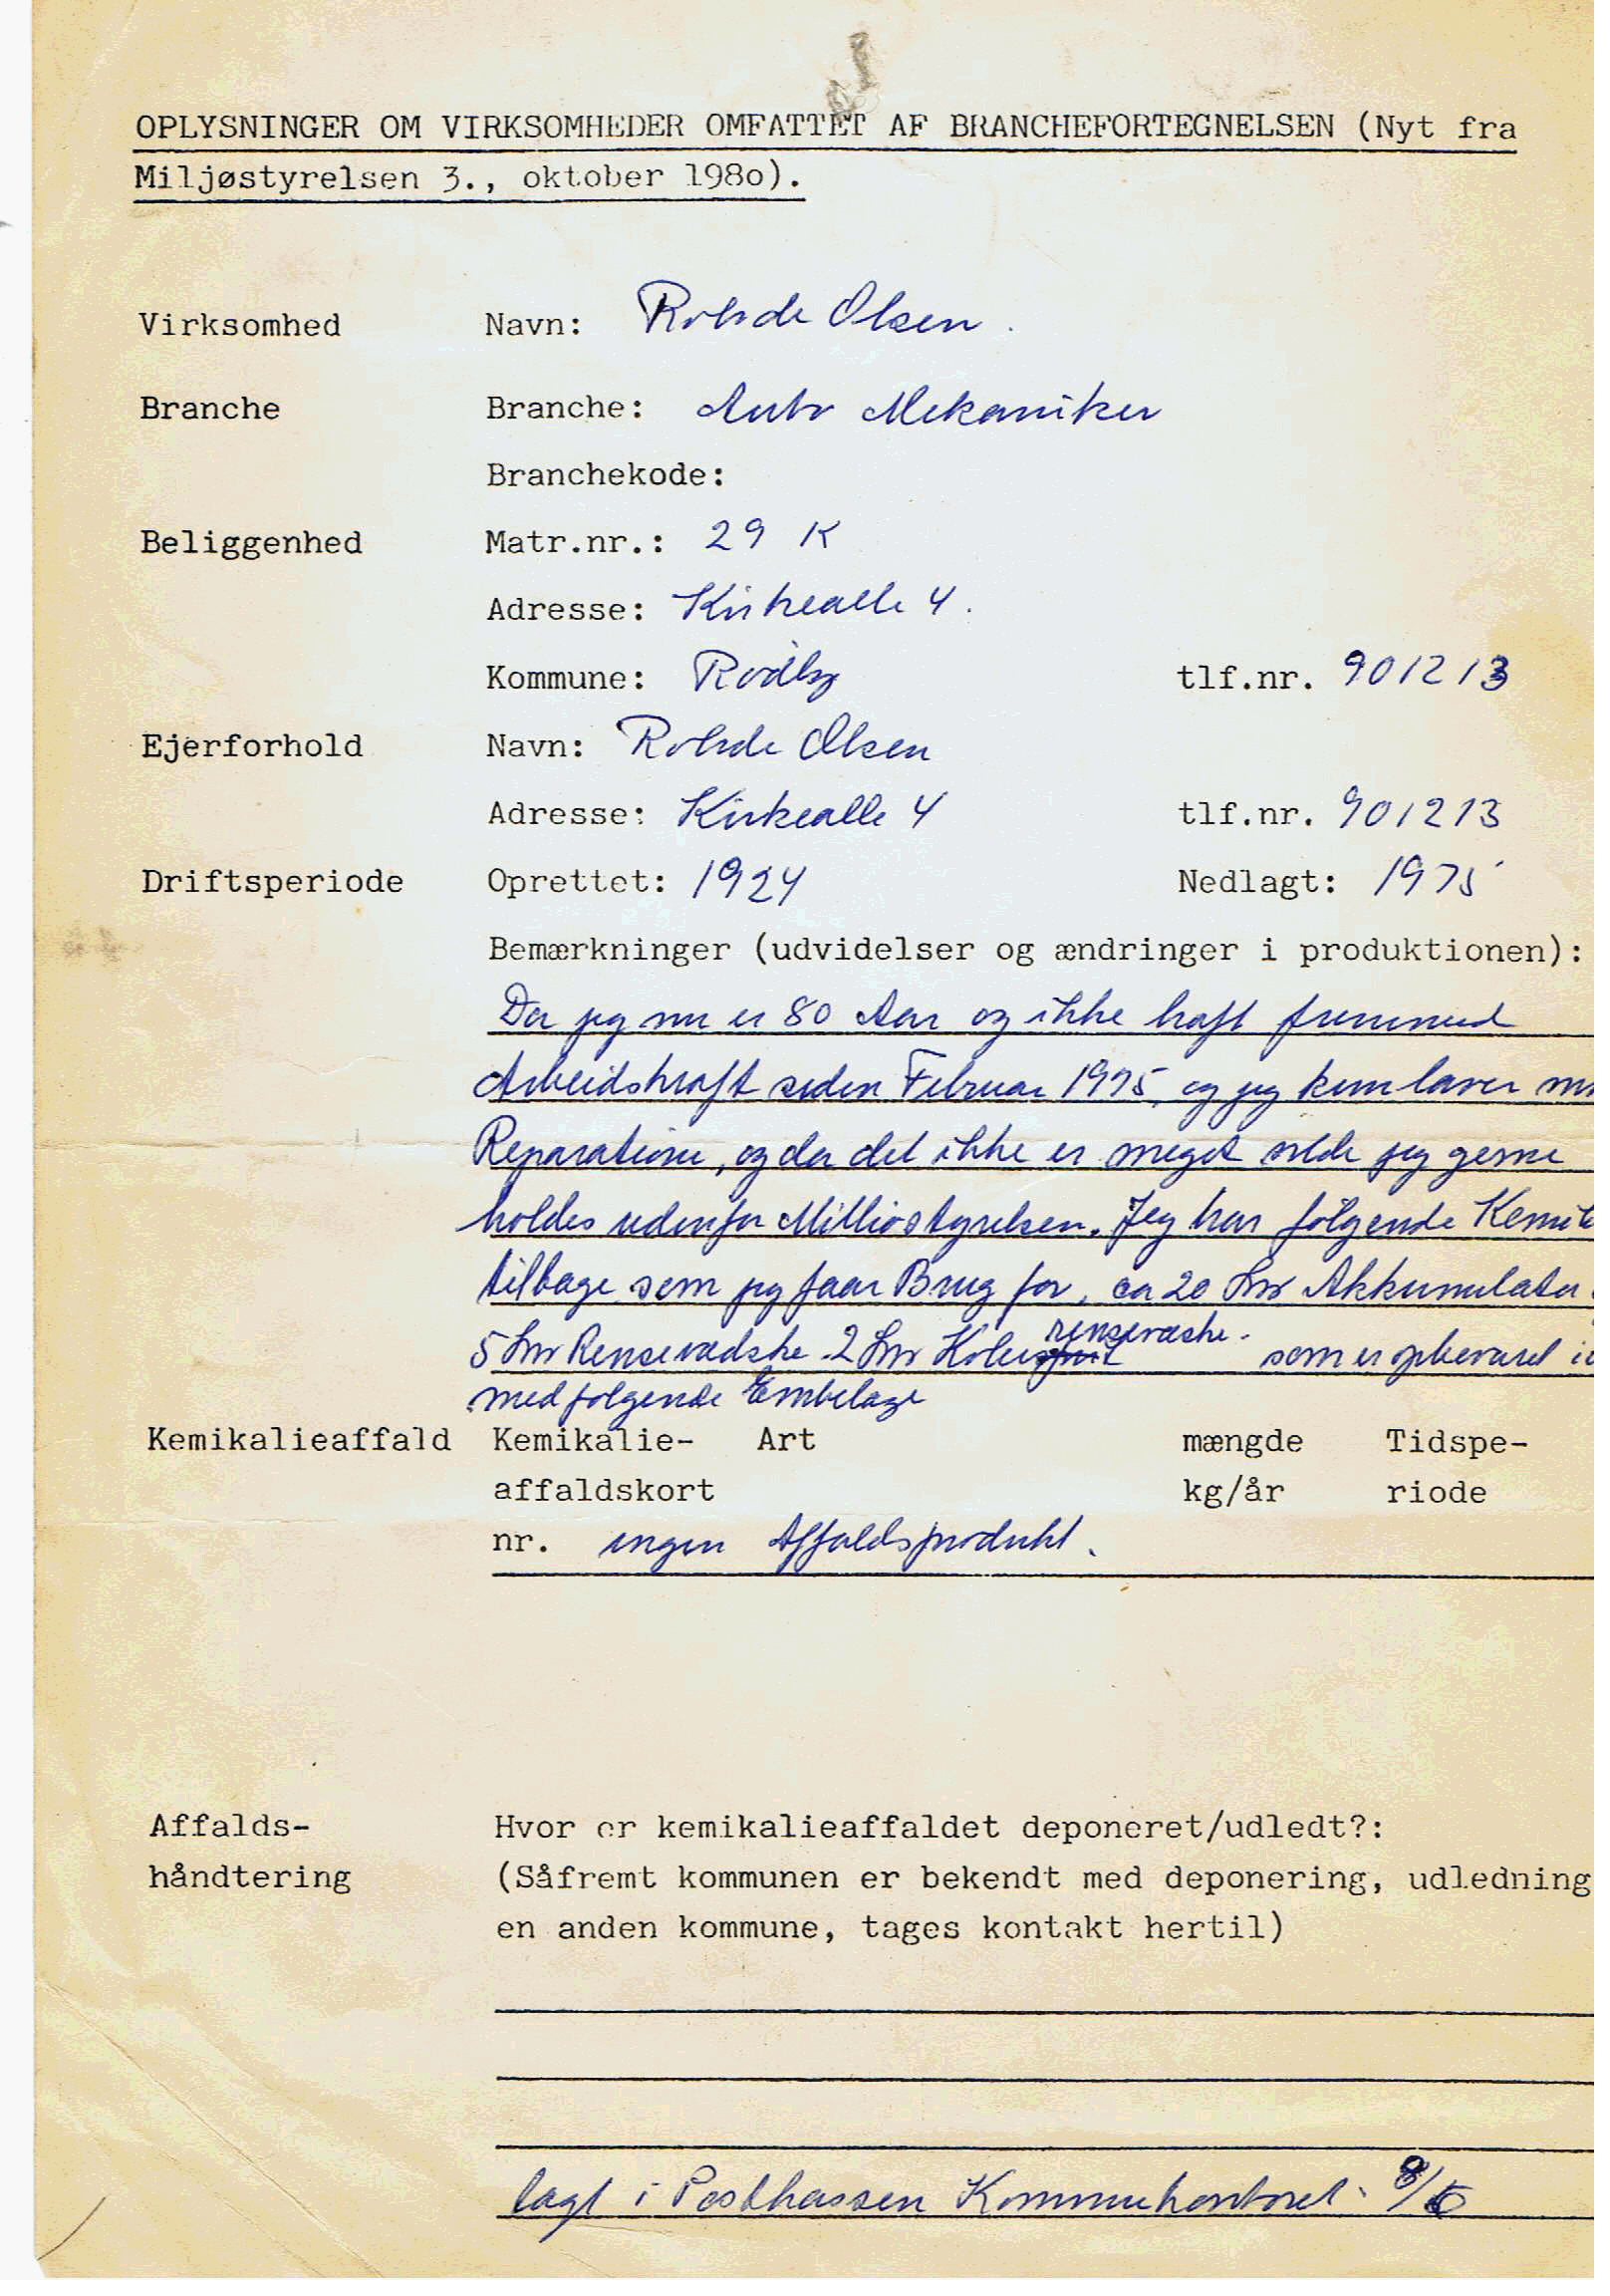 OPLYSNINGER OM VIRKSOMHEDER OMFATTET AF BRANCHEFORTEGNELSEN (Nyt fra
Miljøstyrelsen 3., oktober 198o).
Virksomhed Navn: Rohde Olsen.
Branche Branche: Auto Mekaniker
Branchekode:
Beliggenhed Matr.nr.: 29 K
Adresse: Kirkealle 4.
Kommune: Rødby tlf.nr. 901213
Ejerforhold Navn: Rohde Olsen
Adresse: Kirkealle 4 tlf.nr. 901213
Driftsperiode Oprettet: 1924 Nedlagt: 1975
Bemærkninger (udvidelser og ændringer i produktionen):
Da jeg nu er 80 Aar og ikke haft fremmed
Arbeidskraft siden Februar 1975, og jeg kun laver
Reparatione, og da det ikke er meget vilde jeg gerne
holdes udenfor Milliøstyrelsen. Jeg har følgende Kemik
tilbage som jeg faar Brug for, ca 20 Ltr Akkumulator
5 Ltr Rensevædske 2 Ltr Køler rensevæske. som er opbevaret i
medfølgende Embelage
Kemikalieaffald Kemikalie- Art mængde Tidspe-
affaldskort kg/år riode
nr. ingen Affaldsprodukt.
Affalds- Hvor er kemikalieaffaldet deponeret/udledt?:
håndtering (Såfremt kommunen er bekendt med deponering, udledning
en anden kommune, tages kontakt hertil)
lagt i Postkassen Kommunekontoret.